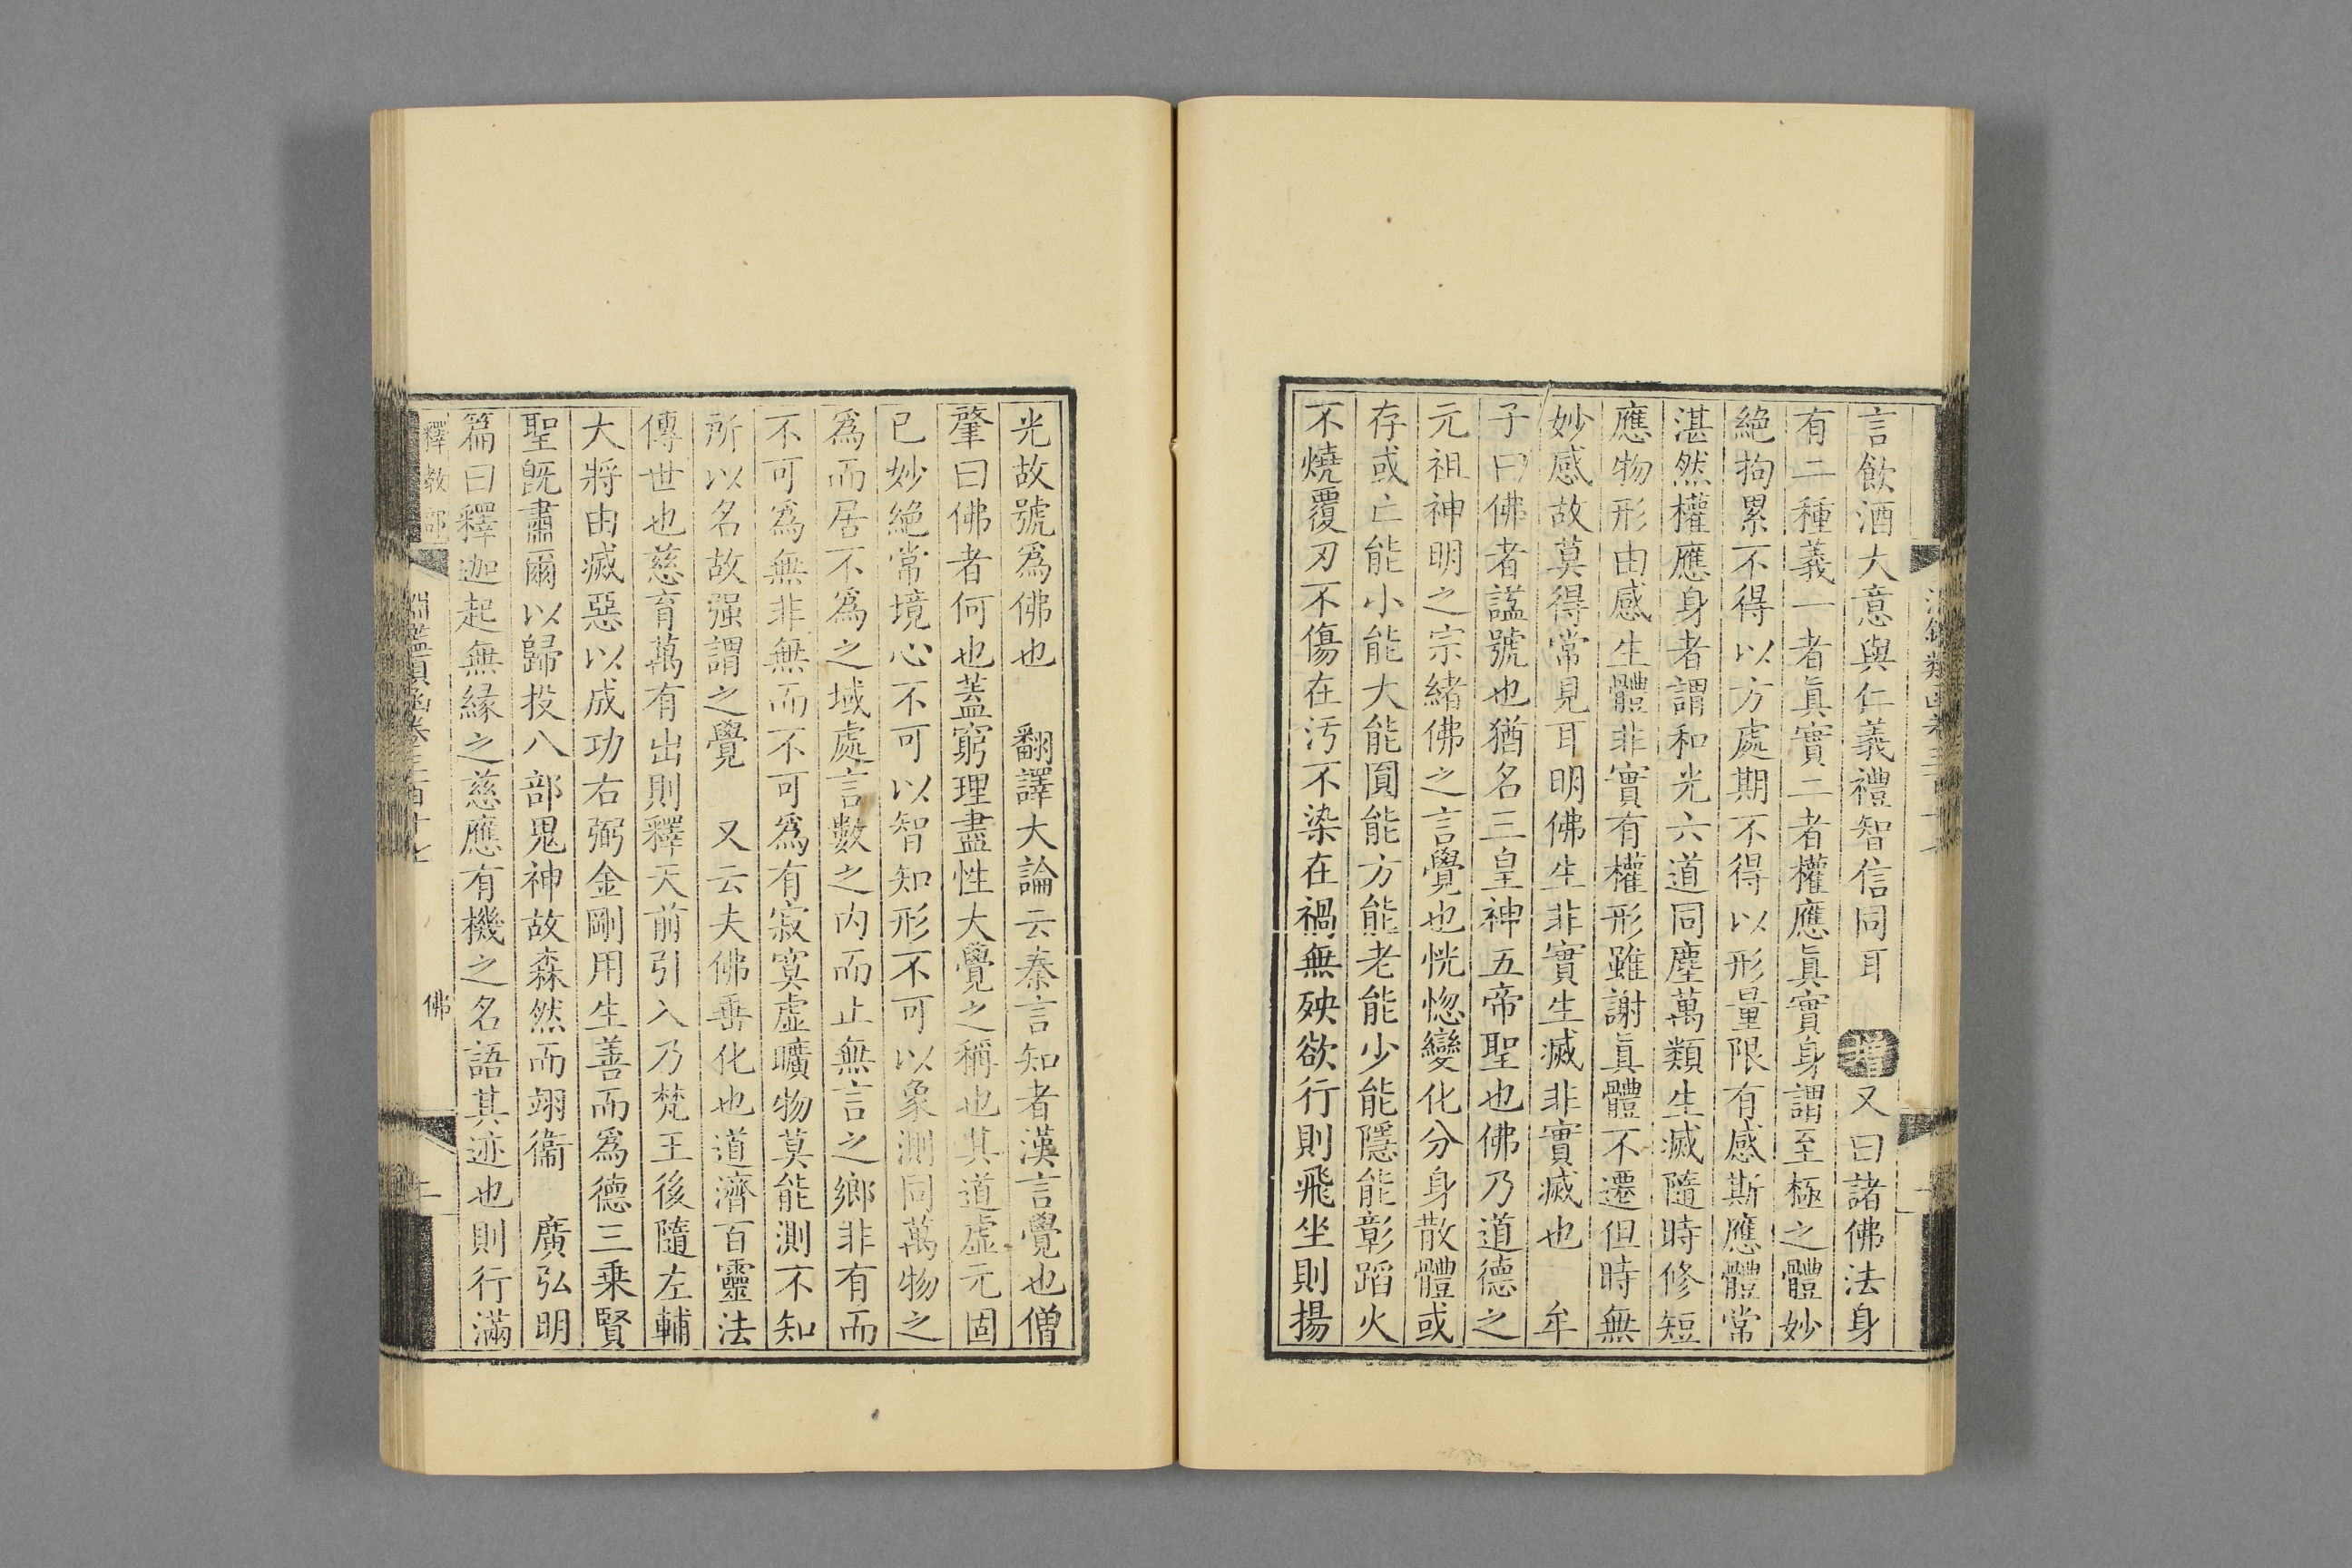 言飲酒大意與仁義禮智信同耳 增又曰諸佛法身
有二種義一者眞實二者權應眞實身謂至極之體妙
絕拘累不得以方處期不得以形量限有感斯應體常
湛然權應身者謂和光六道同塵萬類生滅隨時修短
應物形由感生體非實有權形雖謝眞體不遷但時無
妙感故莫得常見耳 明佛生非實生滅非實滅也 牟
子曰佛者諡號也猶名三皇神五帝聖也佛乃道德之
元祖神明之宗緒佛之言覺也恍惚變化分身散體或
存或亡能小能大能圓能方能老能少能隱能彰蹈火
不燒覆刃不傷在汚不染在禍無殃欲行則飛坐則揚
光故號爲佛也 翻譯大論云秦言知者漢言覺也僧
肇曰佛者何也蓋窮理盡性大覺之稱也其道虛元固
已妙絕常境心不可以智知形不可以象測同萬物之
爲而居不爲之域處言數之內而止無言之鄉非有而
不可爲無非無而不可爲有寂寞虛曠物莫能測不知
所以名故强謂之覺 又云夫佛垂化也道濟百靈法
傳世也慈育萬有出則釋天前引入乃梵王後隨左輔
大將由滅惡以成功右弼金剛用生善而爲德三乘賢
聖旣肅爾以歸投八部鬼神故森然而翊衞 廣弘明
篇曰釋迦起無緣之慈應有機之名語其迹也則行滿
釋教部 淵鑑類函卷三百十七 佛 二